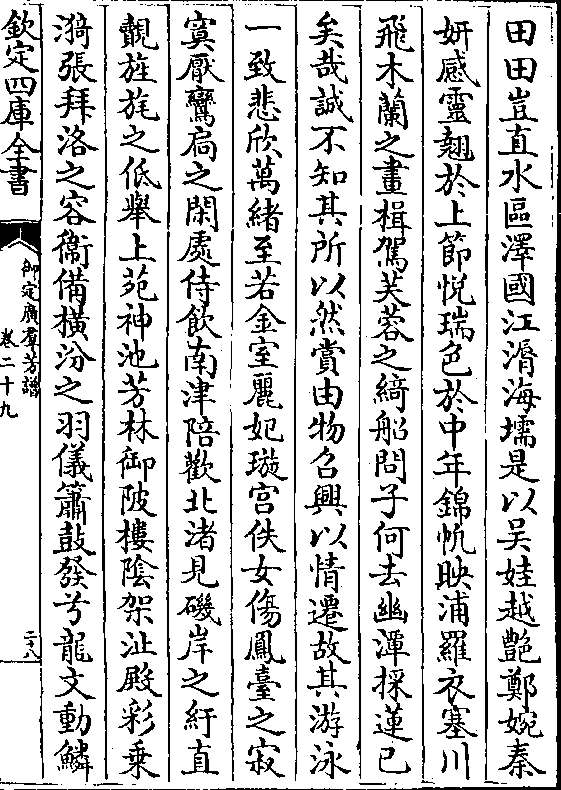 田田豈直水區澤國江湑海壖是以吴娃越艷鄭婉秦
妍感靈翹於上節悦瑞色於中年錦帆映浦羅衣塞川
飛木蘭之畫楫駕芙蓉之綺船問子何去幽潭採蓮已
矣哉誠不知其所以然賞由物召興以情遷故其游泳
一致悲欣萬緒至若金室麗妃璇宫佚女傷鳳臺之寂
寞厭鸞扃之閑處侍飲南津陪歡北渚見磯岸之紆直
覿旌旄之低舉上苑神池芳林御陂樓陰架沚殿彩乗
漪張拜洛之容衞備橫汾之羽儀簫鼓發兮龍文動鱗
欽定四庫全書
御定廣羣芳譜
卷二十九
二十八